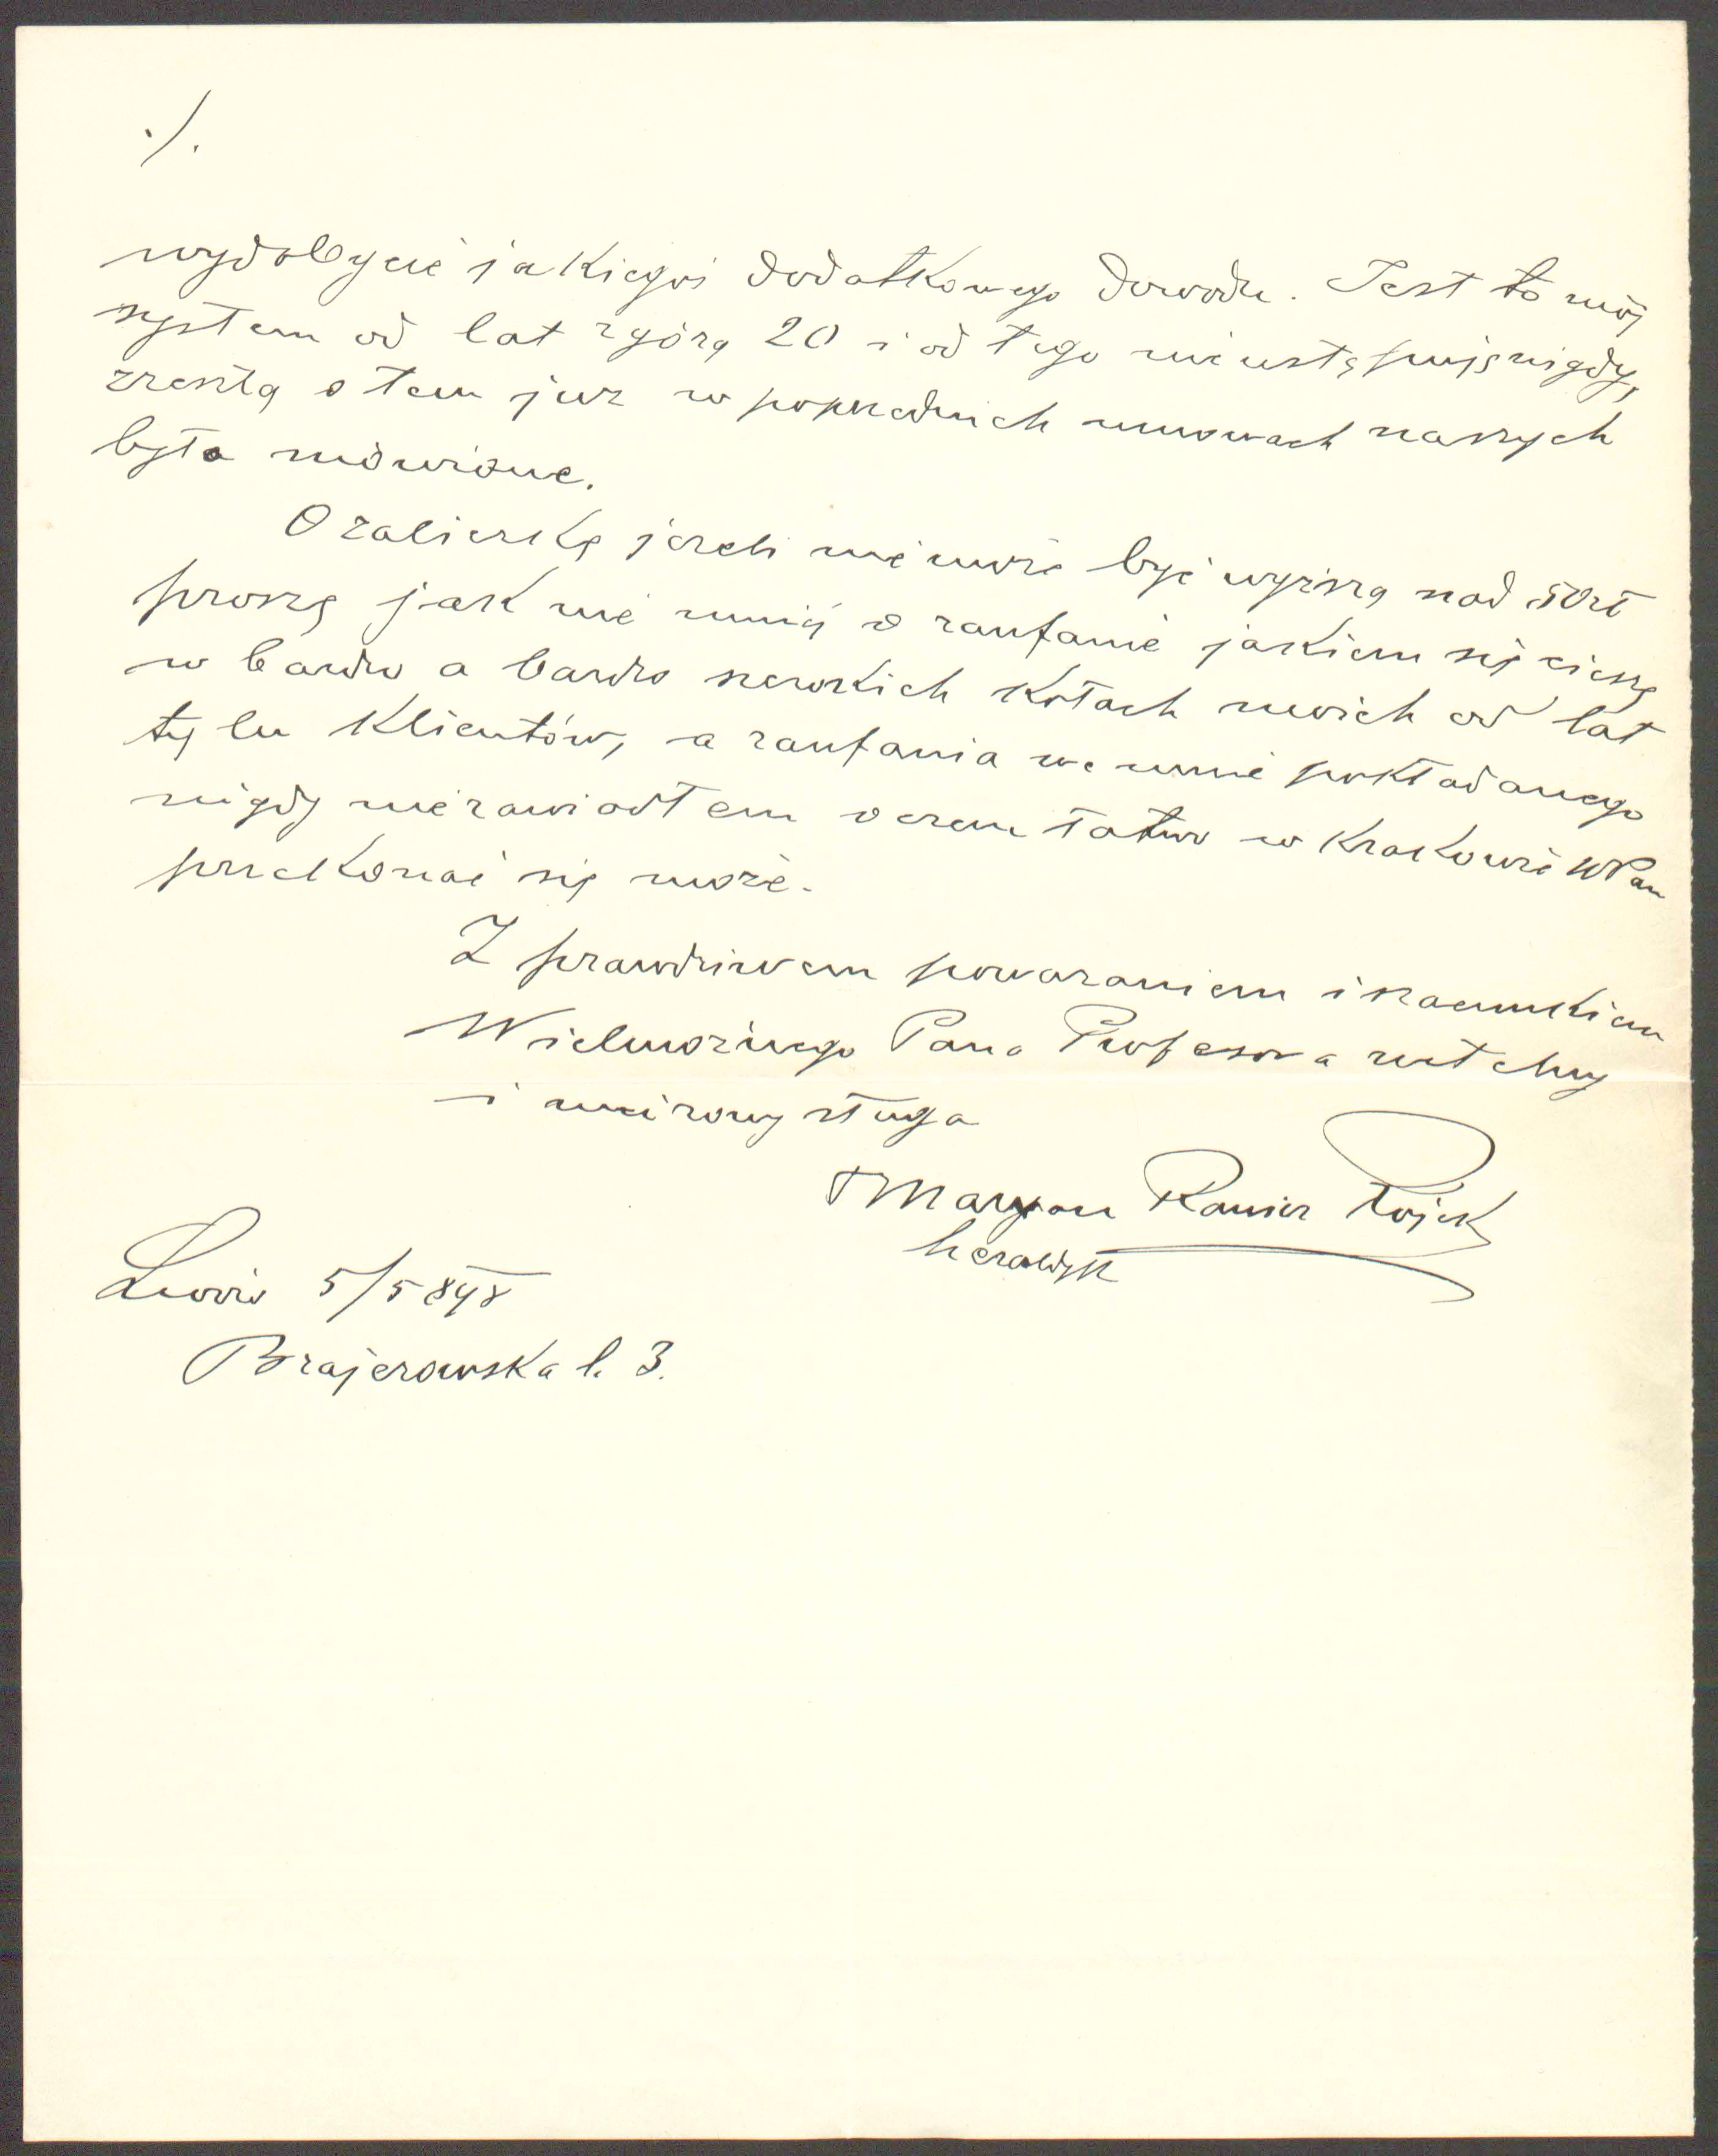 ./.
wydobycie jakiegoś dodatkowego dowodu. Jest to mój
system od lat zgórą 20 i od tego nie ustąpuję nigdy,
zresztą o tem już w poprzednich umowach naszych
było mówione.
O zaliczkę jeżeli nie może być wyższą nad 50zł
proszę jak nie mniej o zaufanie jakiem się cieszę
w bardzo a bardzo szerokich kołach moich od lat
tylu Klientów, a zaufania we mnie pokładanego
nigdy nie zawiodłem o czem łatwo w Krakowie WPan
przekonać się może.
Z prawdziwem poważaniem i szacunkiem
Wielmożnego Pana Profesora uległy
i uniżony sługa
Maryan Rawicz
heraldyk
Lwów 5/5 898
Brajerowska l. 3.